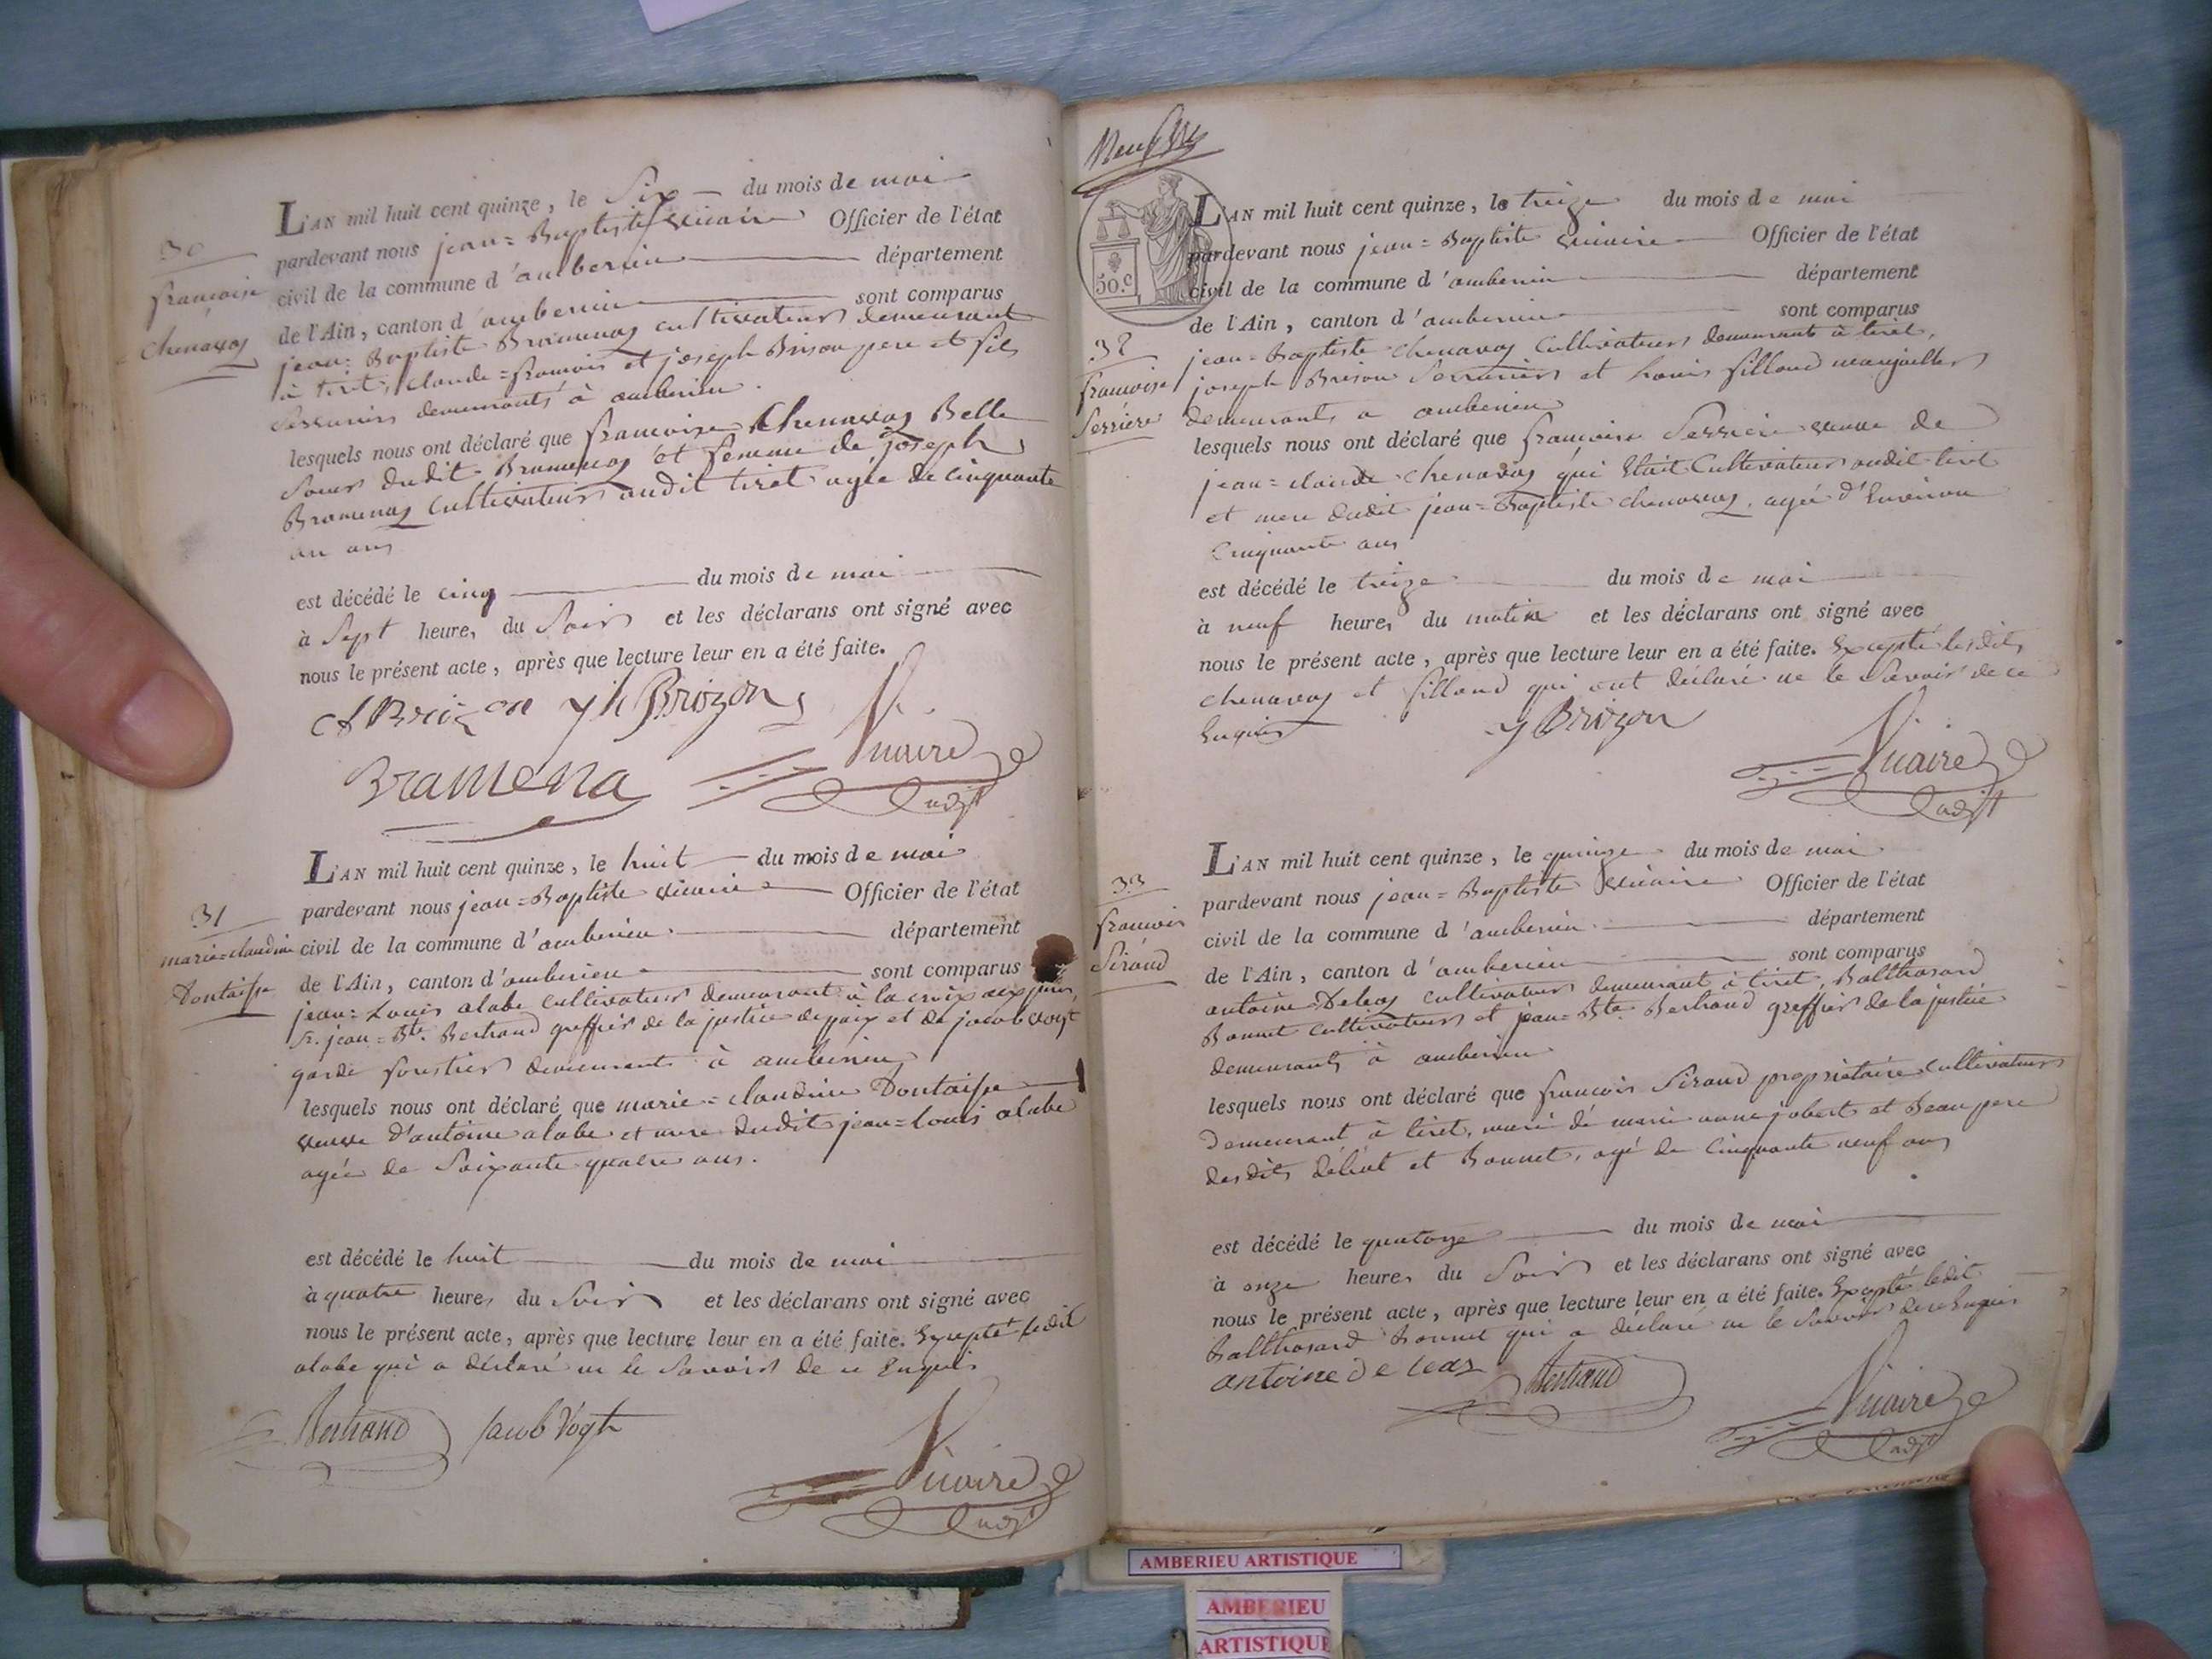 30
françoise
Chenavas
L'AN mil huit cent quinze, le Six du mois de mai
pardevant nous jean=Baptiste Vicaire Officier de l'état
civil de la commune d'amberieu département
de l'Ain, canton d'amberieu sont comparus
jean=Baptiste Bramenas cultivateur demeurant
à tiret, Claude=françois et joseph Brison pere et fils
Serruriers demeurants à amberieu.
lesquels nous ont déclaré que françoise Chenavas Belle
Soeur dudit Bramenas et femme de joseph
Bramenas Cultivateur audit tiret agée de cinquante
un ans
est décédé le cinq du mois de mai
à Sept heures du Soir et les déclarans ont signé avec
nous le présent acte, après que lecture leur en a été faite.
Brizon jh Brizon
Bramena Vicaire
adjt
31
marie=claudine
Dontaisse
L'AN mil huit cent quinze, le huit du mois de mai
pardevant nous jean=Baptiste Vicaire Officier de l'état
civil de la commune d'amberieu département
de l'Ain, canton d'amberieu sont comparus
jean=Louis alabe Cultivateur demeurant à la croix
Sr. jean=Bte. Bertrand greffier de la justice de paix et de jacob Vogt
garde forestier demeurants à amberieu
lesquels nous ont déclaré que marie=claudine Dontaisse
veuve d'antoine alabe et mere dudit jean=Louis alabe
agée de Soixante quatre ans.
est décédé le huit du mois de mai
à quatre heures du Soir et les déclarans ont signé avec
nous le présent acte, après que lecture leur en a été faite. Excepté ledit
alabe qui a déclaré ne le Savoir de ce Enquis
Bertrand Jacob Vogt
Vicaire
adjt
50.c
32
françoise
Serriere
L'AN mil huit cent quinze, le treize du mois de mai
pardevant nous jean=Baptiste Vicaire Officier de l'état
civil de la commune d'amberieu département
de l'Ain, canton d'amberieu sont comparus
jean=Baptiste Chenavas Cultivateur demeurant à tiret,
joseph Brison Serrurier et Louis filloud marguiller
demeurants a amberieu
lesquels nous ont déclaré que françoise Serriere veuve de
jean=claude Chenavas qui Etait Cultivateur audit tiret
et mere dudit jean=Baptiste Chenavas, agée d'Environ
Cinquante ans
est décédé le treize du mois de mai
à neuf heures du matin et les déclarans ont signé avec
nous le présent acte, après que lecture leur en a été faite. Excepté lesdits
Chenavas et filloud qui ont déclaré ne le Savoir de ce
Enquis
j Brizon
Vicaire
adjt
33
françois
Siraud
L'AN mil huit cent quinze, le quinze du mois de mai
pardevant nous jean=Baptiste Vicaire Officier de l'état
civil de la commune d'amberieu département
de l'Ain, canton d'amberieu sont comparus
antoine Deleas cultivateur demeurant à tiret, Balthasard
Bonnet cultivateur et jean=Bte. Bertrand greffier de la justice
demeurants à amberieu
lesquels nous ont déclaré que françois Siraud propriétaire cultivateur
demeurant à tiret, mari de marie anne jobert et Beau pere
desdits et Bonnet, agé de Cinquante neuf ans
est décédé le quatorze du mois de mai
à onze heures du Soir et les déclarans ont signé avec
nous le présent acte, après que lecture leur en a été faite. Excepté ledit
Balthasard Bonnet qui a déclaré ne le Savoir de ce Enquis
antoine de leas Bertrand
Vicaire
adjt
AMBERIEU ARTISTIQUE
AMBERIEU
ARTISTIQUE